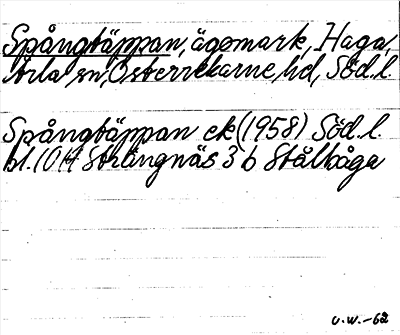 Spångtäppan, ägomark, Haga,
Ärla sn, Österrekarne hd, Söd.l.
Spångtäppan ek (1958) Söd.l.
bl. (OH4 Strängnäs 3 b Stålbåga
U.W.-62